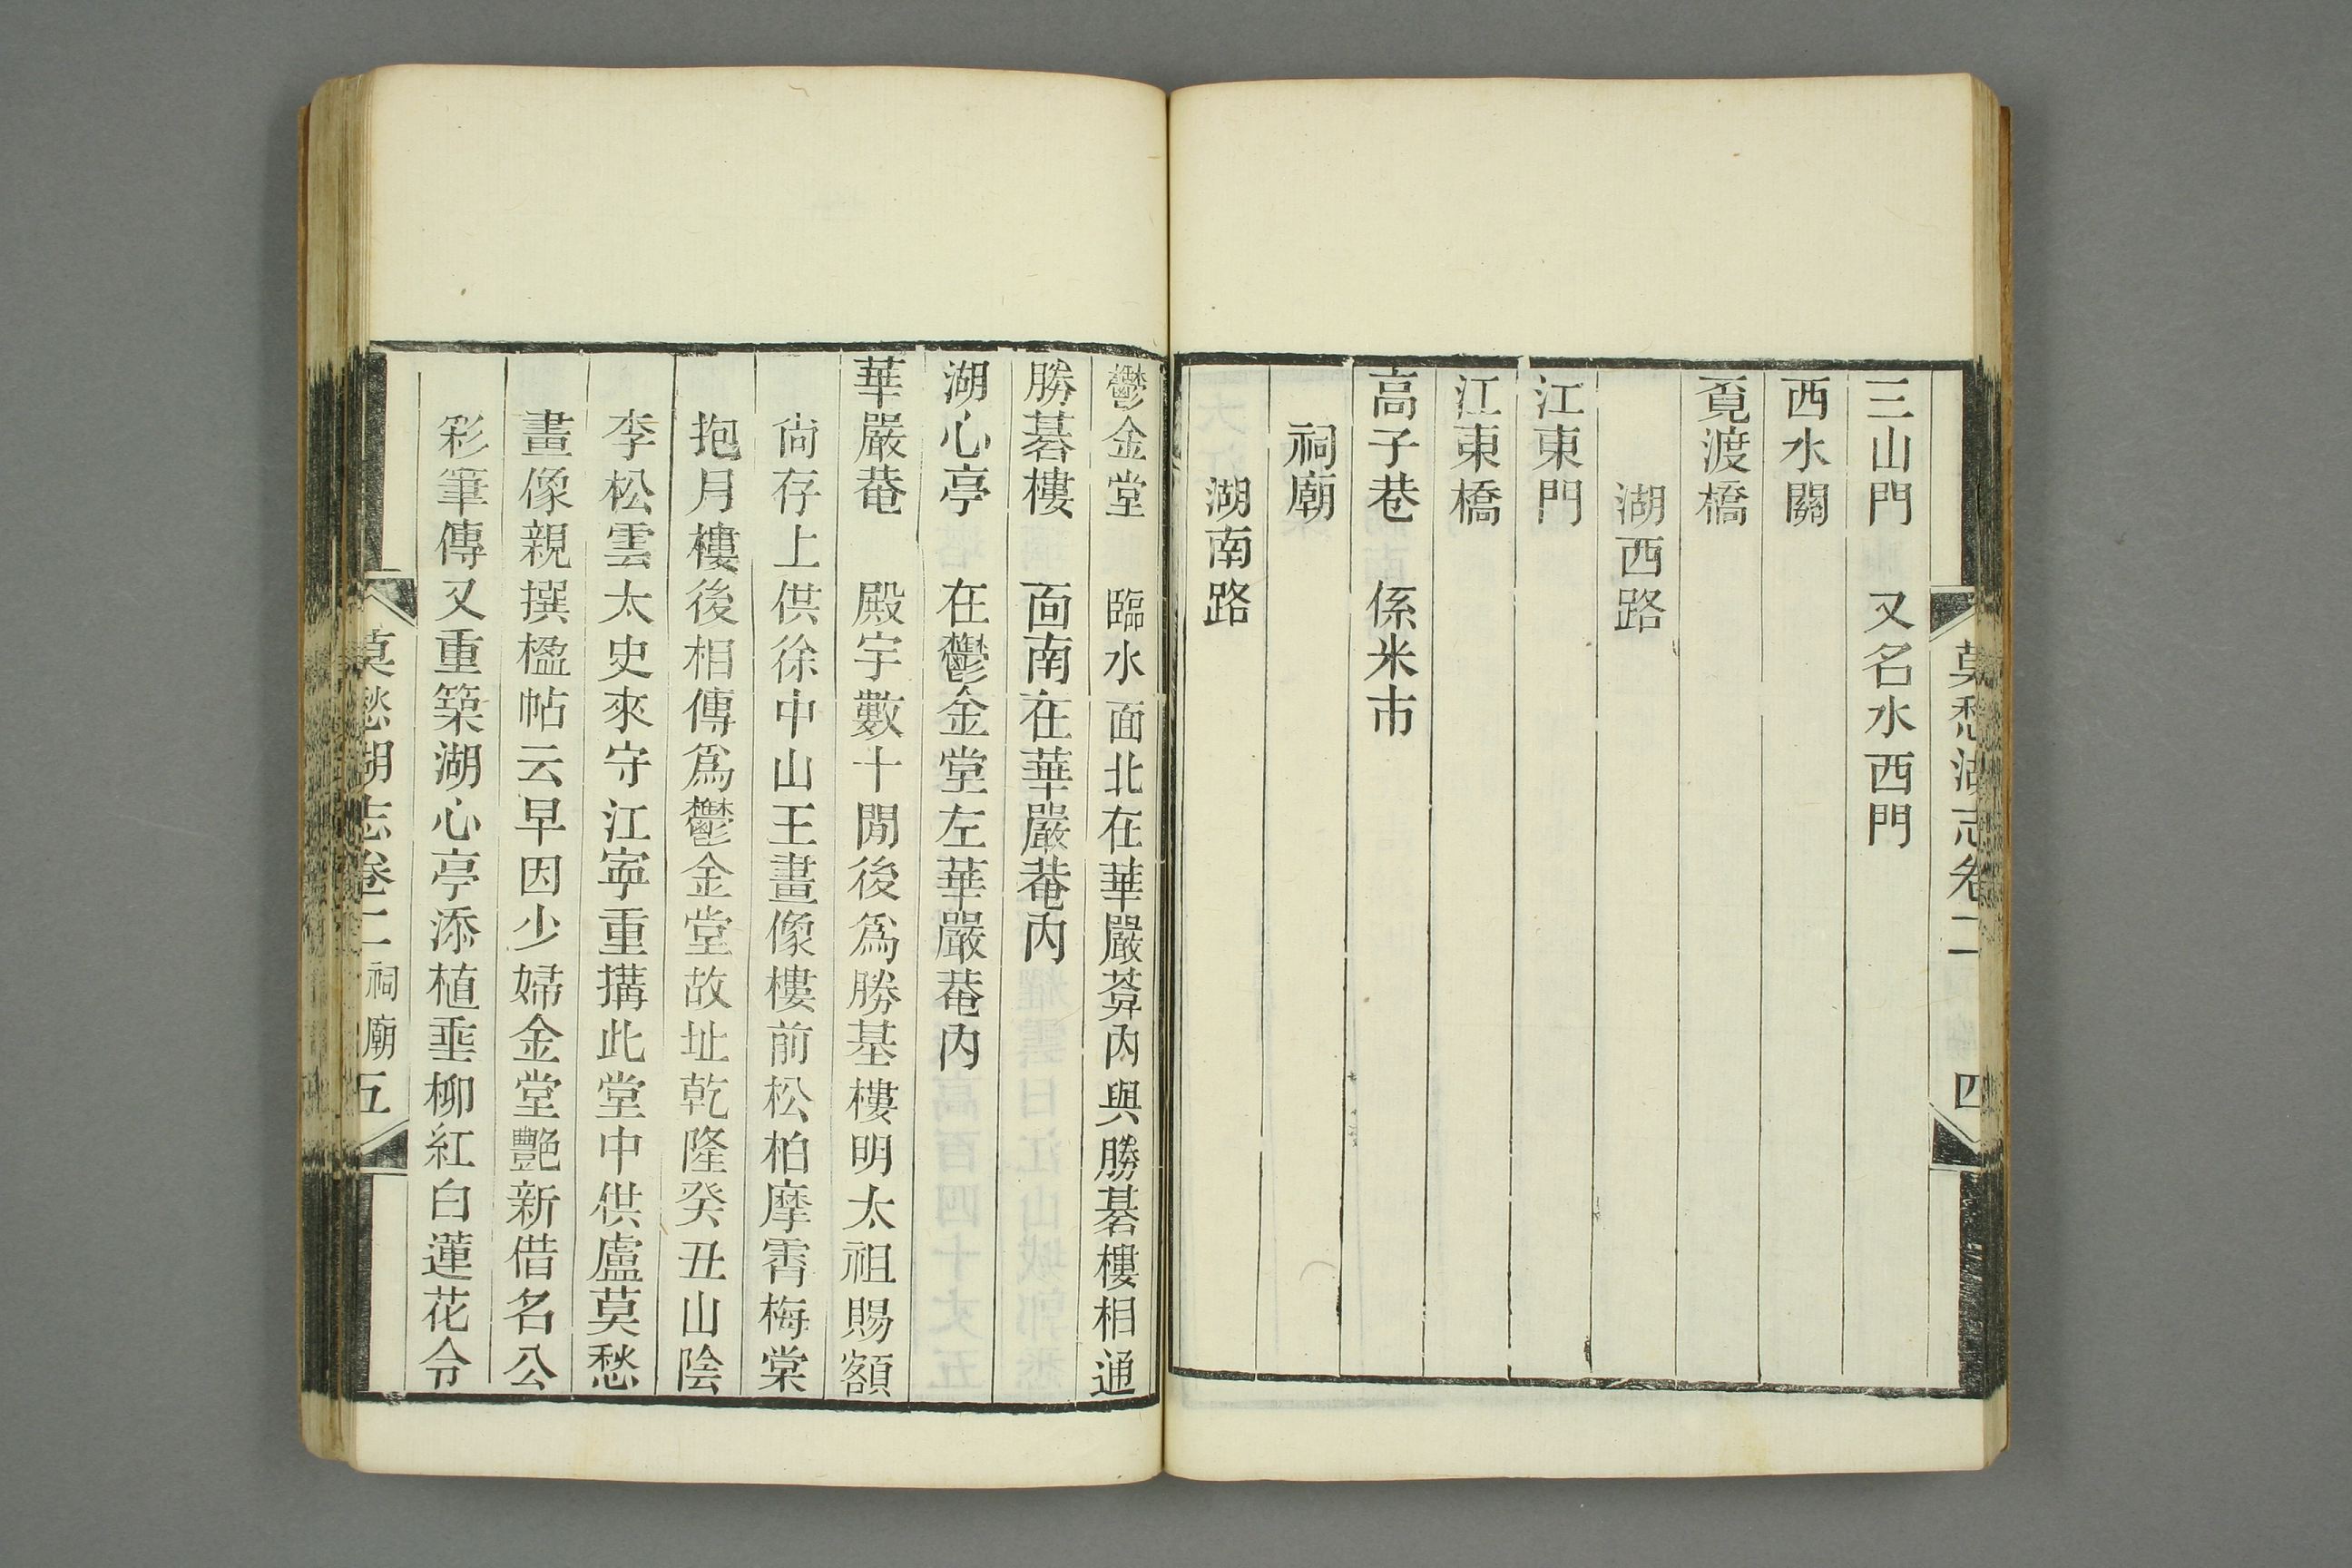 三山門　又名水西門
西水關
覔渡橋
湖西路
江東門
江東橋
高子巷　係米市
祠廟
湖南路
莫愁湖志卷二　四
鬱金堂　臨水面北在華嚴菴內與勝碁樓相通
勝碁樓　面南在華嚴菴內
湖心亭　在鬱金堂左華嚴菴內
華嚴菴　殿宇數十閒後爲勝基樓明太祖賜額
尙存上供徐中山王畫像樓前松柏摩霄梅棠
抱月樓後相傳爲鬱金堂故址乾隆癸丑山陰
李松雲太史來守江寧重搆此堂中供盧莫愁
畫像親撰楹帖云早因少婦金堂艷新借名公
彩筆傳又重築湖心亭添植垂柳紅白蓮花令
莫愁湖志卷二　祠廟　五